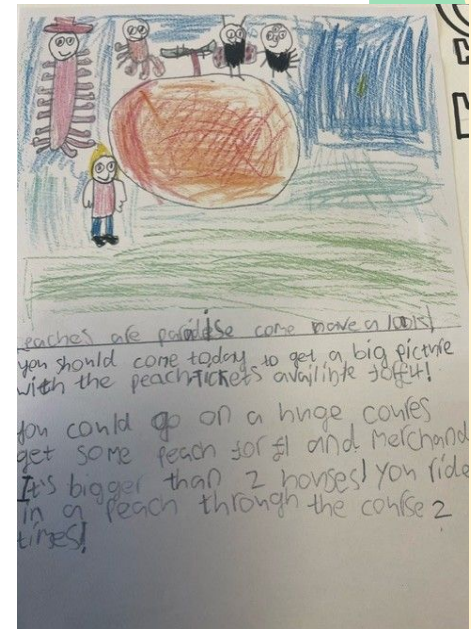 eaches are paradise come have a look!
you should come today to get a big picture
with the peach Tickets availible for £4!
you could go on a huge coures
get some peach for £1 and Merchand
It's bigger than 2 houses! you ride
in a peach through the course 2
times!